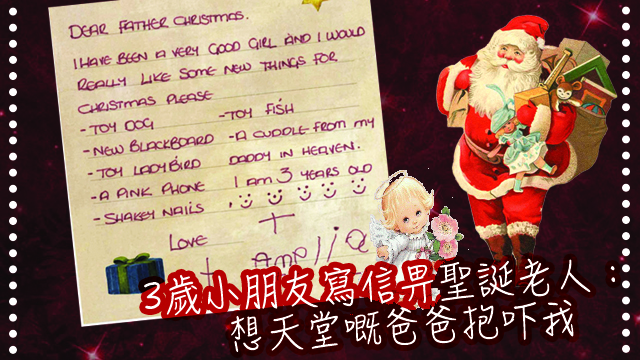 DEAR FATHER CHRISTMAS.
I HAVE BEEN A VERY GOOD GIRL AND I WOULD
REALLY LIKE SOME NEW THINGS FOR
CHRISTMAS PLEASE
- TOY DOG
- TOY FISH
- NEW BLACKBOARD
- A CUDDLE FROM MY
DADDY IN HEAVEN.
- TOY LADYBIRD
- A PINK PHONE
I AM 3 YEARS OLD
- SHAKEY NAILS
LOVE
AMELIA
3歲小朋友寫信畀聖誕老人：
想天堂嘅爸爸抱吓我